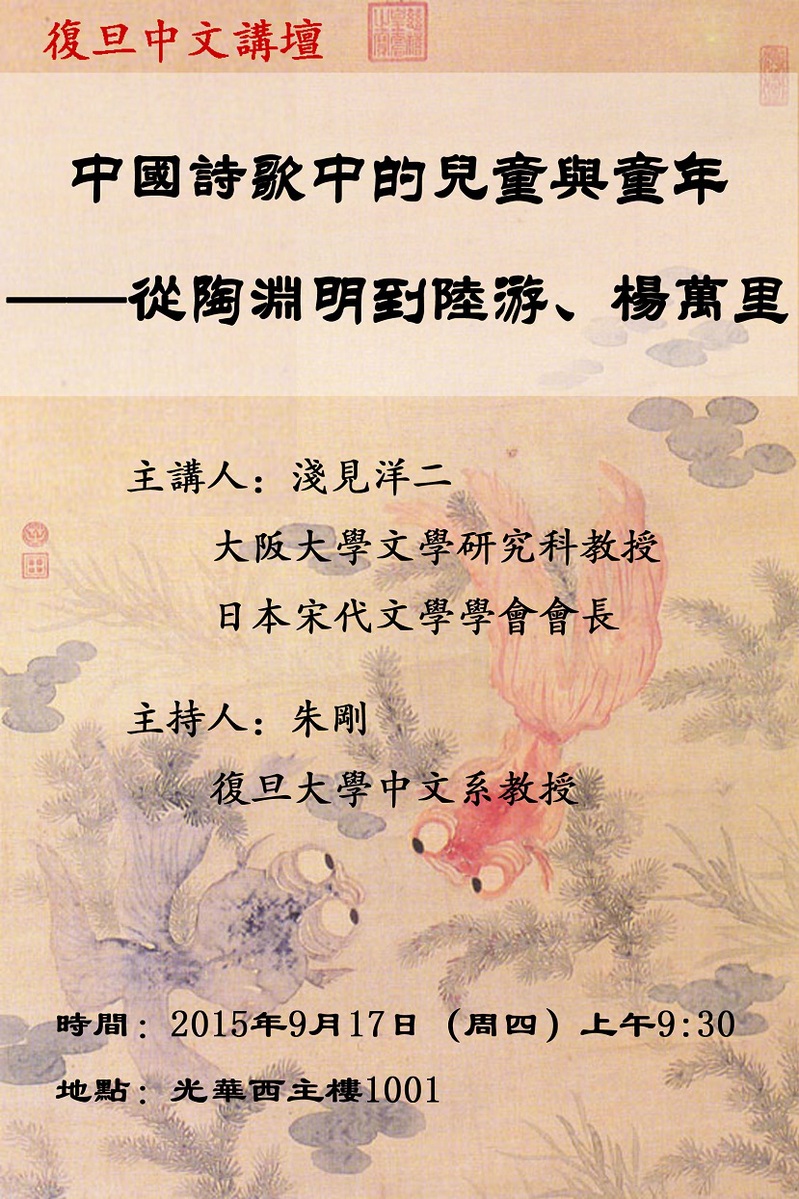 復旦中文講壇
中國詩歌中的兒童與童年
——從陶淵明到陸游、楊萬里
主講人：淺見洋二
大阪大學文學研究科教授
日本宋代文學學會會長
主持人：朱剛
復旦大學中文系教授
時間：2015年9月17日（周四）上午9:30
地點：光華西主樓1001